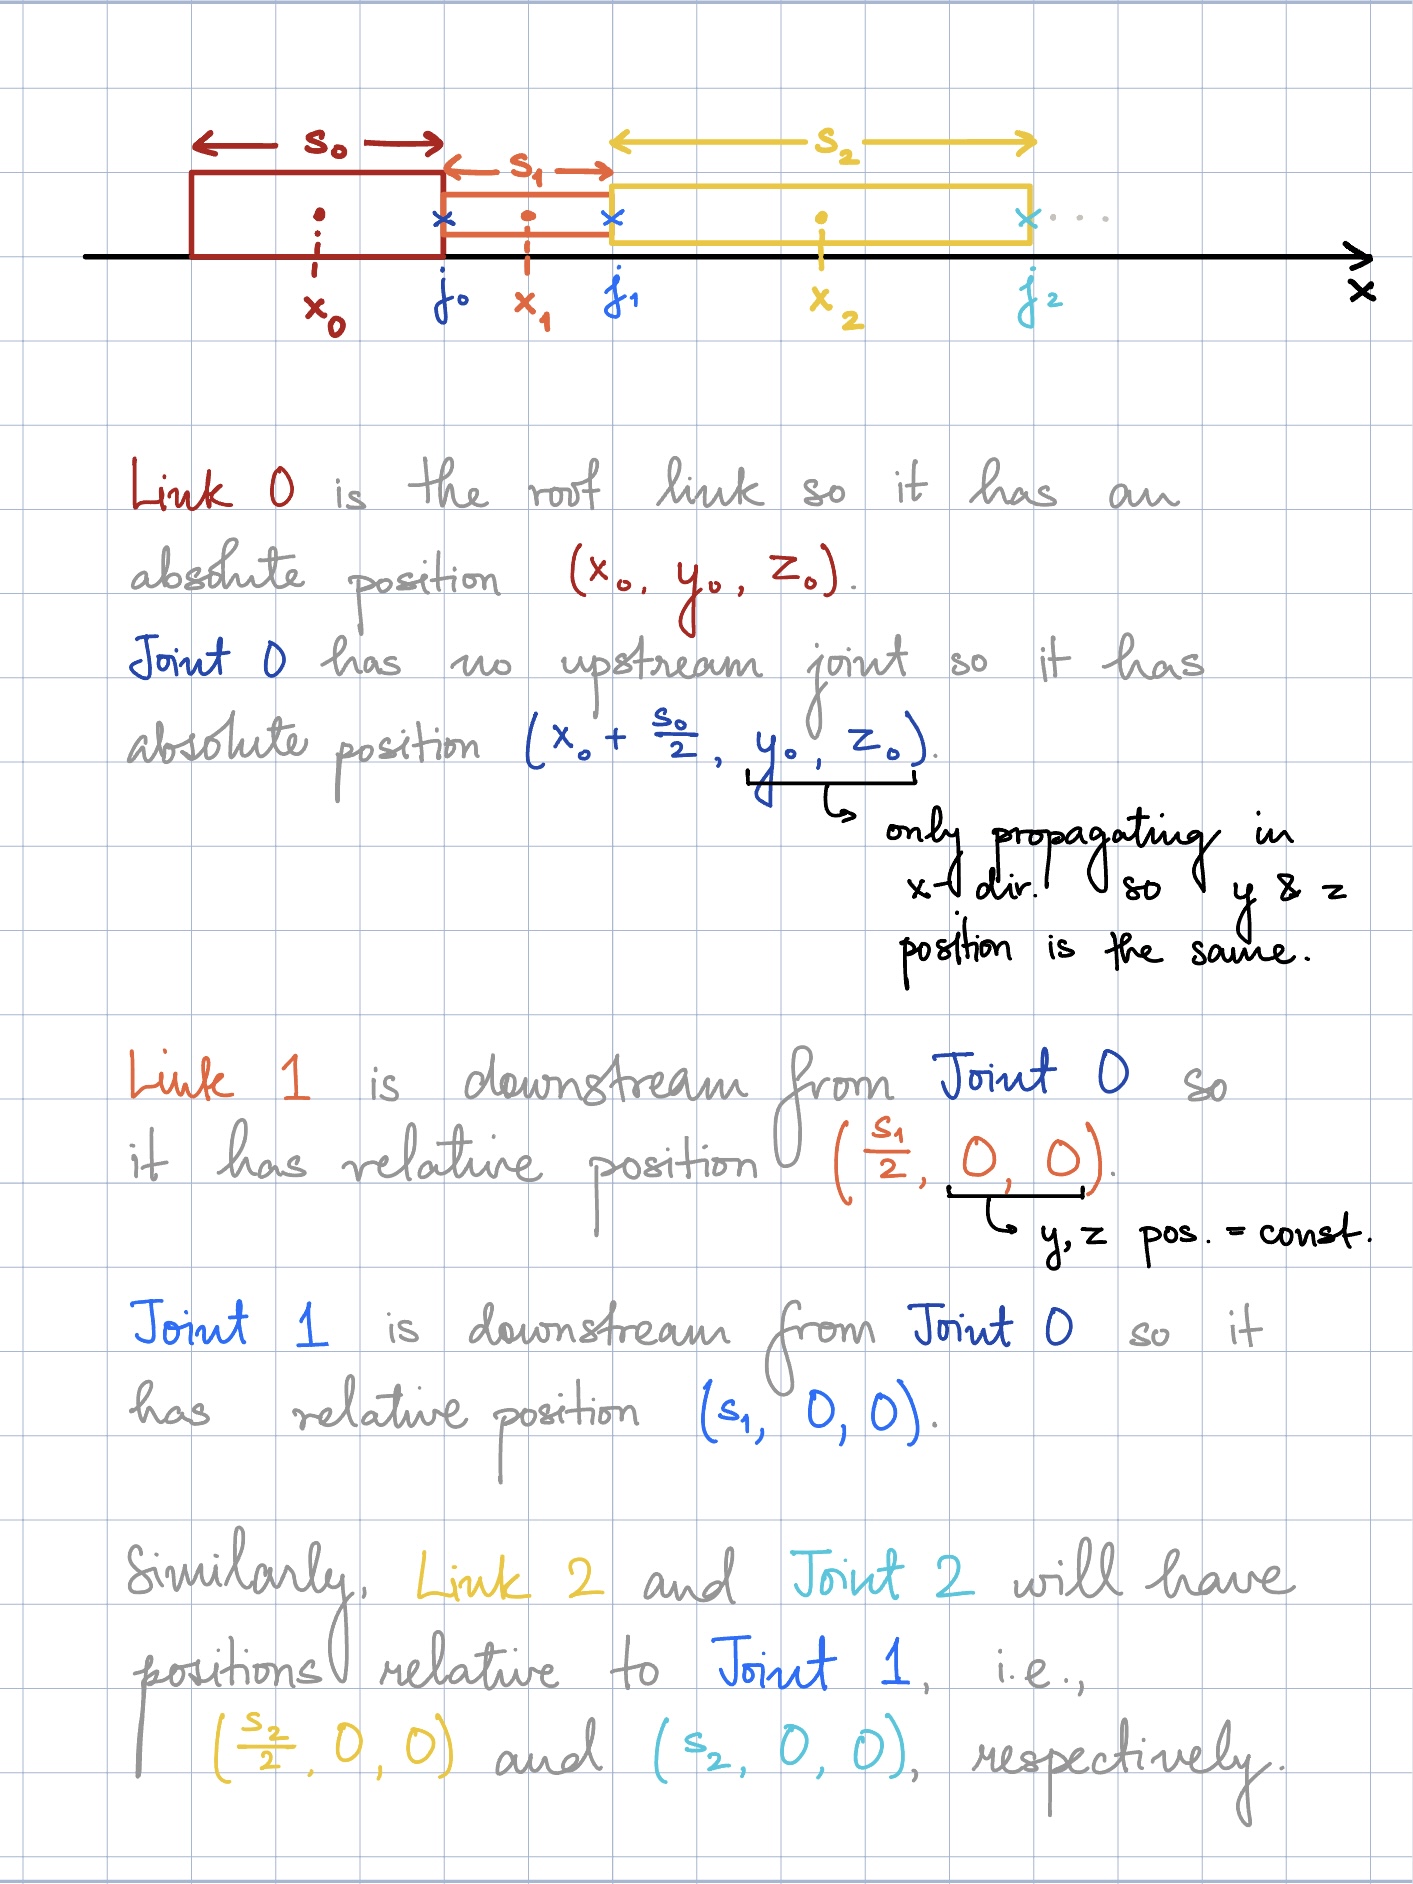 s₀ s₁ s₂
x₀ j₀ x₁ j₁ x₂ j₂ x
Link 0 is the root link so it has an
absolute position (x₀, y₀, z₀).
Joint 0 has no upstream joint so it has
absolute position (x₀ + s₀/2, y₀, z₀).
only propagating in
x-dir. so y & z
position is the same.
Link 1 is downstream from Joint 0 so
it has relative position (s₁/2, 0, 0).
y, z pos. = const.
Joint 1 is downstream from Joint 0 so it
has relative position (s₁, 0, 0).
Similarly, Link 2 and Joint 2 will have
positions relative to Joint 1, i.e.,
(s₂/2, 0, 0) and (s₂, 0, 0), respectively.